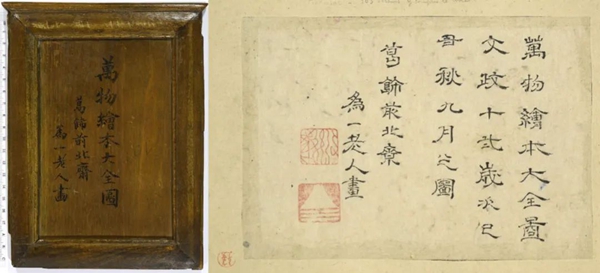 萬物繪本大全圖
葛飾前北齋
為一老人畫
萬物繪本大全圖
文政十弐歳次己
丑秋九月之圖
葛飾前北齋
為一老人畫